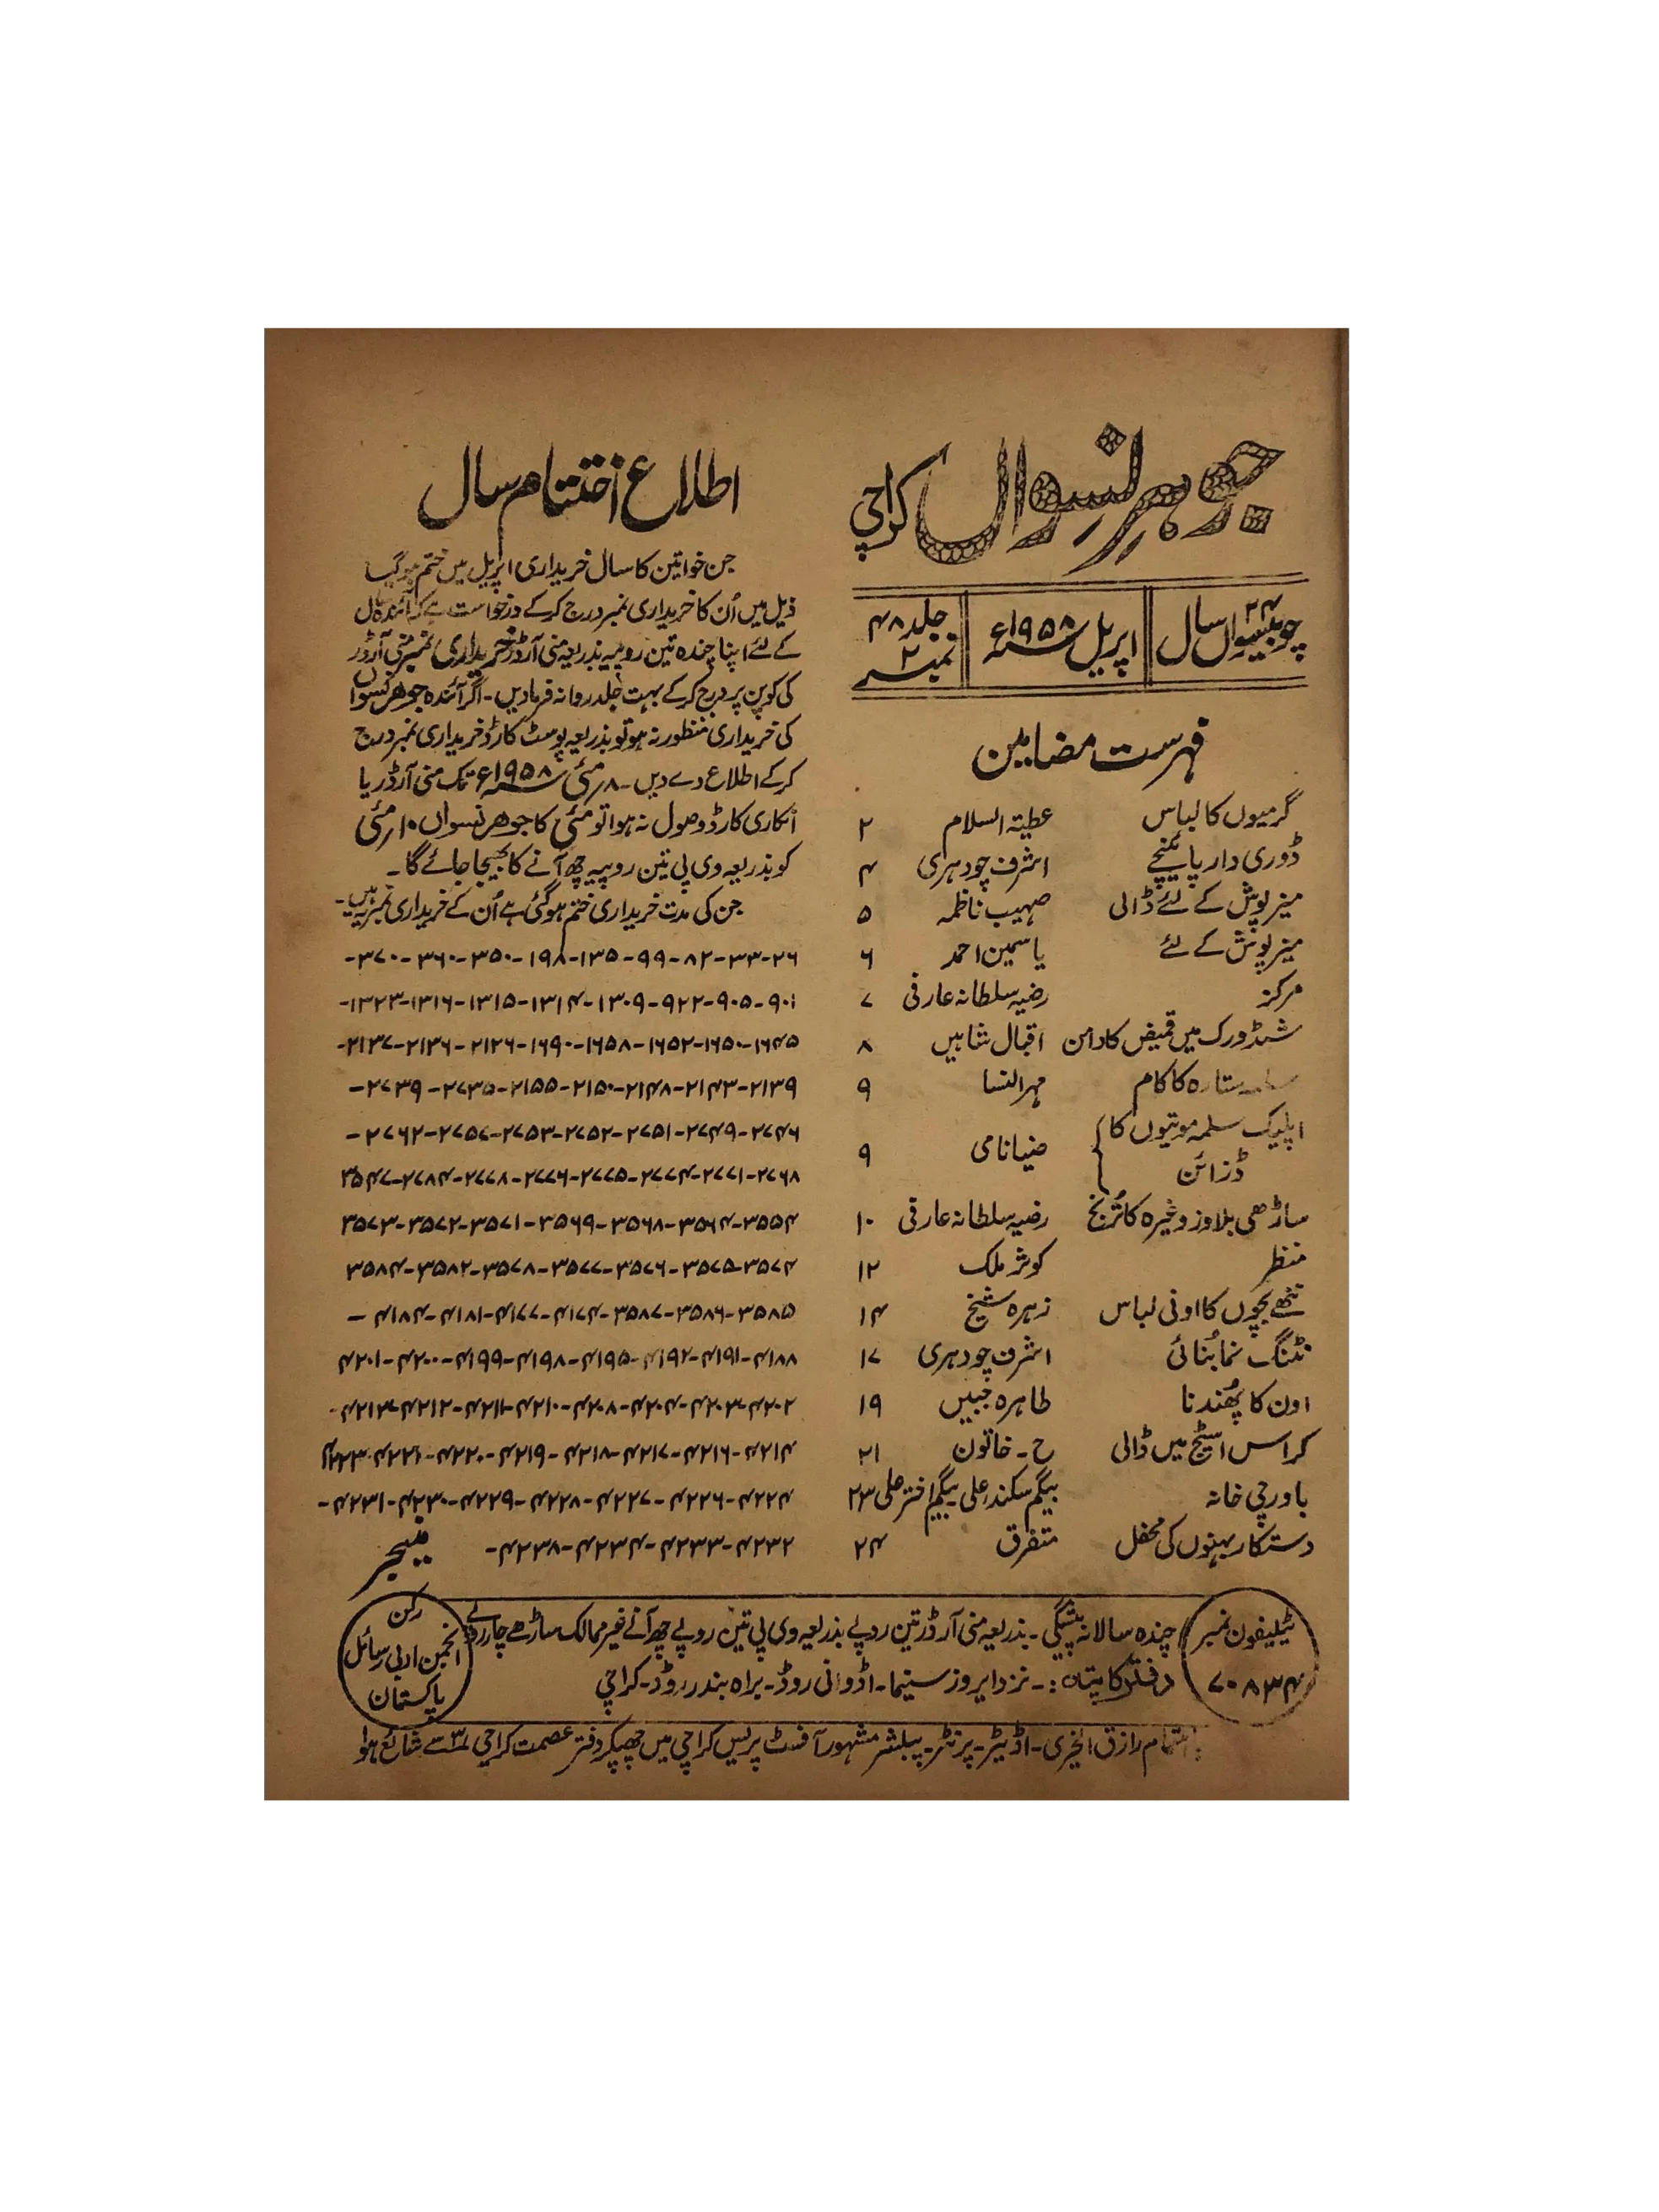 جوہرِ نسواں کراچی
چوبیسواں ۲۴ سال
اپریل ۱۹۵۸ء
جلد ۴۸
نمبر ۲
فہرست مضامین
گرمیوں کا لباس عطیتہ السلام ۲
ڈوری دار پائینچے اشرف چودہری ۴
میز پوش کے لئے ڈالی صہیب ناظمہ ۵
میز پوش کے لئے یاسمین احمد ۶
مرکز رضیہ سلطانہ عارفی ۷
شیڈ ورک میں قمیض کا دامن اقبال شاہیں ۸
سلمہ ستارہ کا کام مہر النسا ۹
اپلیک سلمہ موتیوں کا
ڈزائن ضیا نامی ۹
ساڑھی بلاوز وغیرہ کا تُرنج رضیہ سلطانہ عارفی ۱۰
منظر کوثر ملک ۱۲
ننھے بچوں کا اونی لباس زہرہ شیخ ۱۴
نٹنگ نما بُنائی اشرف چودہری ۱۷
اون کا پھُندنا طاہرہ جبیں ۱۹
کراس اسٹچ میں ڈالی ح۔ خاتون ۲۱
باورچی خانہ بیگم سکندر علی۔ بیگم اختر علی ۲۳
دستکار بہنوں کی محفل متفرق ۲۴
اطلاع اختتام سال
جن خواتین کا سال خریداری اپریل میں ختم ہو گیا
ذیل میں اُن کا خریداری نمبر درج کر کے درخواست ہے کہ آئندہ سال
کے لئے اپنا چندہ تین روپیہ بذریعہ منی آرڈر خریداری نمبر منی آرڈر
کی کوپن پر درج کر کے بہت جلد روانہ فرمادیں۔ اگر آئندہ جوہر نسواں
کی خریداری منظور نہ ہو تو بذریعہ پوسٹ کارڈ خریداری نمبر درج
کر کے اطلاع دے دیں۔ ۸ مئی ۱۹۵۸ء تک منی آرڈر یا
انکاری کارڈ وصول نہ ہوا تو مئی کا جوہر نسواں ۱۰ مئی
کو بذریعہ وی پی تین روپیہ چھ آنے کا بھیجا جائے گا۔
جن کی مدت خریداری ختم ہو گئی ہے اُن کے خریداری نمبر یہ ہیں۔
۲۶-۳۳-۸۲-۹۹-۱۳۵-۱۹۸-۳۵۰-۳۶۰-۳۷۰-
۹۰۱-۹۰۵-۹۲۲-۱۳۰۹-۱۳۱۴-۱۳۱۵-۱۳۱۶-۱۳۲۳-
۱۶۴۵-۱۶۵۰-۱۶۵۲-۱۶۵۸-۱۶۹۰-۲۱۲۶-۲۱۳۶-۲۱۳۷-
۲۱۳۹-۲۱۴۳-۲۱۴۸-۲۱۵۰-۲۱۵۵-۲۷۳۵-۲۷۳۹-
۲۷۴۶-۲۷۴۹-۲۷۵۱-۲۷۵۲-۲۷۵۳-۲۷۵۷-۲۷۶۲-
۲۷۶۸-۲۷۷۱-۲۷۷۴-۲۷۷۵-۲۷۷۶-۲۷۷۸-۲۷۸۴-۳۵۴۷
۳۵۵۴-۳۵۶۴-۳۵۶۸-۳۵۶۹-۳۵۷۱-۳۵۷۲-۳۵۷۳
۳۵۷۴-۳۵۷۵-۳۵۷۶-۳۵۷۷-۳۵۷۸-۳۵۸۲-۳۵۸۴
۳۵۸۵-۳۵۸۶-۳۵۸۷-۴۱۷۴-۴۱۷۷-۴۱۸۱-۴۱۸۴-
۴۱۸۸-۴۱۹۱-۴۱۹۲-۴۱۹۵-۴۱۹۸-۴۱۹۹-۴۲۰۰-۴۲۰۱
۴۲۰۲-۴۲۰۳-۴۲۰۴-۴۲۰۸-۴۲۱۰-۴۲۱۱-۴۲۱۲-۴۲۱۳-
۴۲۱۴-۴۲۱۶-۴۲۱۷-۴۲۱۸-۴۲۱۹-۴۲۲۰-۴۲۲۱-۴۲۲۳
۴۲۲۴-۴۲۲۶-۴۲۲۷-۴۲۲۸-۴۲۲۹-۴۲۳۰-۴۲۳۱-
۴۲۳۲-۴۲۳۳-۴۲۳۴-۴۲۳۸- منیجر
ٹیلیفون نمبر
۷۰۸۳۴
چندہ سالانہ پیشگی۔ بذریعہ منی آرڈر تین روپئے بذریعہ وی پی تین روپے چھ آنے غیر ممالک ساڑھے چار روپے
دفتر کا پتہ:۔ نزد ایروز سینما۔ اڈوانی روڈ۔ براہ بندر روڈ۔ کراچی
رکن
انجمن ادبی رسائل
پاکستان
باہتمام رازق الخیری۔ اڈیٹر۔ پرنٹر۔ پبلشر مشہور آفسٹ پریس کراچی میں چھپکر دفتر عصمت کراچی ۳ سے شائع ہوا